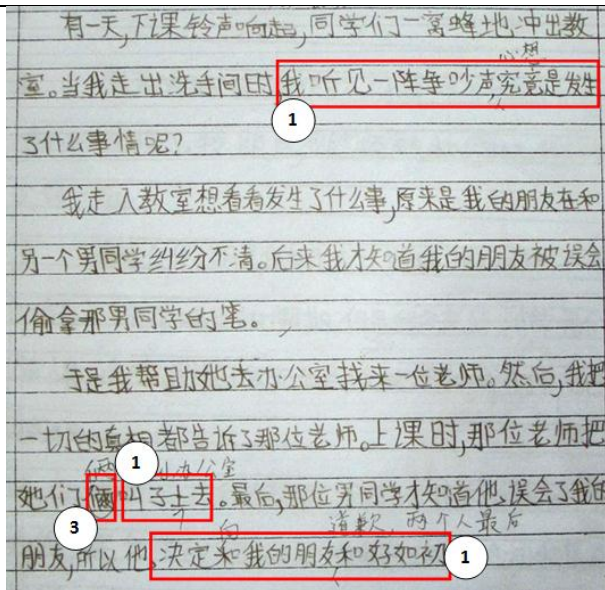 有一天,下课铃声响起,同学们一窝蜂地冲出教
心想
室。当我走出洗手间时,我听见一阵争吵声,究竟是发生
1
了什么事情呢?
我走入教室想看看发生了什么事,原来是我的朋友在和
另一个男同学纠纷不清。后来我才知道我的朋友被误会
偷拿那男同学的笔。
于是我帮助她去办公室找来一位老师。然后,我把
一切的真相都告诉了那位老师。上课时,那位老师把
俩 1 办公室
她们 叫了上去。最后,那位男同学才知道他误会了我的
3 向 道歉,两个人最后
朋友,所以他,决定和我的朋友和好如初 1